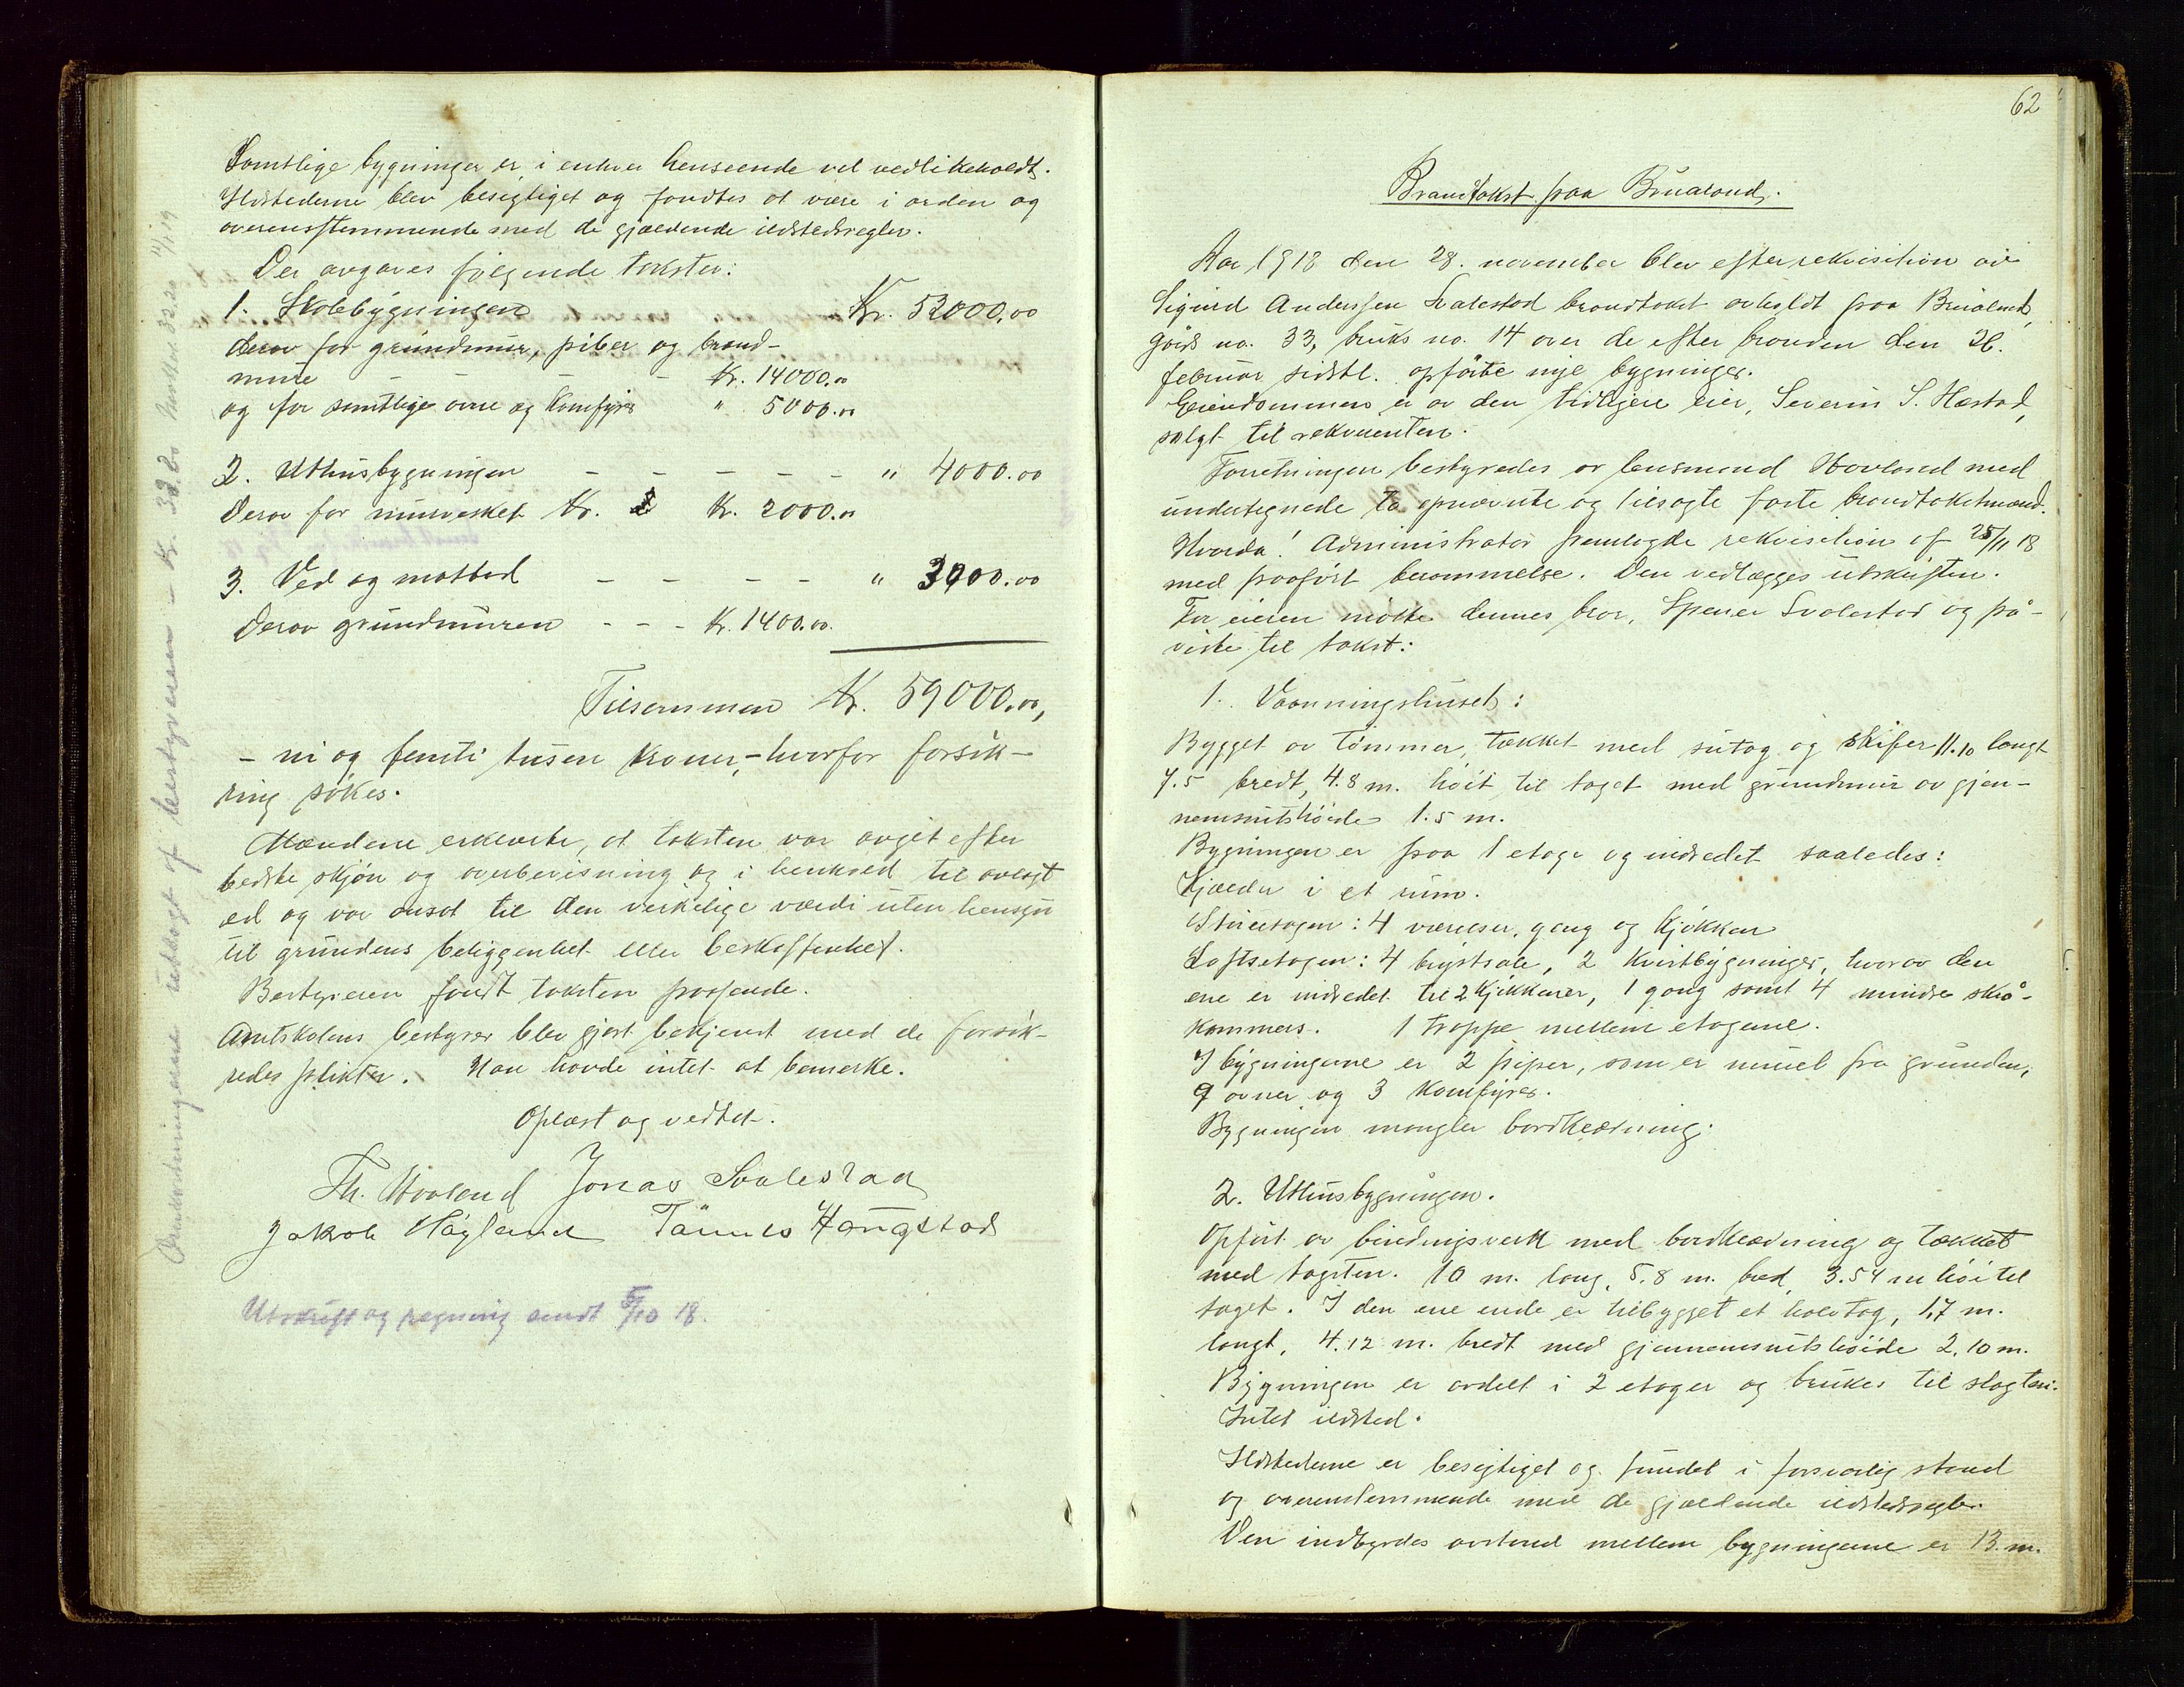 Samtlige bygninger er i enhver henseende vel vedlikeholdt.
Ildstederne blev besigtiget og fandtes at være i orden og
overensstemmende med de gjældende ildstedsregler.
Der avgaves følgende takster:
1. Skolebygningen Kr. 52000.00
derav for grundmur, piber og brand-
mure - - - - Kr. 14000.00
og for samtlige ovne og komfyrer " 5000.00
2. Uthusbygningen - - - - - " 4000.00
Derav for murverket Kr. Kr. 2000.00
3. Ved og matbod - - - - " 3000.00
Derav grundmuren - - - Kr. 1400.00.
Tilsammen Kr. 59000.00,
- ni og femti tusen kroner, - hvorfor forsik-
ring søkes.
Mændene erklærte, at taksten var avgit efter
bedste skjøn og overbevisning og i henhold til avlagt
ed og var ansat til den virkelige værdi uten hensyn
til grundens beliggenhet eller beskaffenhet.
Bestyreren fandt taksten passende.
Amtskolens bestyrer blev gjort bekjendt med de forsik-
redes plikter. Han havde intet at bemerke.
Oplæst og vedtat.
Th. Hovland Jonas Svalestad
Jakob Høyland Tønnes Haugstad
Utskrift og regning sendt 5/10 18.
Omkostningerne utlagt af bestyreren - Kr. 33.20 14/1 19
62
Brandtakst paa Brualand.
Aar 1918 den 28. november blev efter rekvisition av
Sigurd Anderssen Svalestad brandtakst avholdt paa Brualand,
gårds no. 33, bruks no. 14 over de efter branden den 26.
februar sidstl. opførte nye bygninger.
Eiendommen er av den tidligere eier, Severin S. Hæstad,
solgt til rekvirenten.
Forretningen bestyredes av lensmand Hovland med
undertegnede to opnævnte og tilsagte faste brandtakstmænd.
Hvorda! Administrator fremlagde rekvisition af 25/11 18
med paaført berammelse. Den vedlægges utskriften.
For eieren møtte dennes bror, Spener Svalestad og på-
viste til takst:
1. Vaaningshuset:
Bygget av tømmer, tækket med sutag og skifer 11.10 langt
7.5 bredt, 4.8 m. høit til taget med grundmur av gjen-
nemsnitshøide 1.5 m.
Bygningen er paa 1 etage og indredet saaledes:
Kjælder i et rum.
Stuetagen: 4 værelser, gang og kjøkken
Loftsetagen: 4 brystsale, 2 kvistbygninger, hvorav den
ene er indredet til 2 kjøkkener, 1 gang samt 4 mindre skrå-
kammers. 1 trappe mellem etagene.
I bygningerne er 2 piper, som er muret fra grunden,
9 ovner og 3 komfyrer.
Bygningen mangler bordklædning.
2. Uthusbygningen.
Opført av bindingsverk med bordklædning og tækket
med tagsten. 10 m. lang, 5.8 m. bred, 3.54 m høi til
taget. I den ene ende er tilbygget et halvtag, 1,7 m.
langt, 4.12 m. bredt med gjennemsnitshøide 2.10 m.
Bygningen er avdelt i 2 etager og brukes til slagteri.
Intet ildsted.
Ildstederne er besigtiget og fundet i forsvarlig stand
og overenstemmende med de gjældende ildstedsregler.
Den indbyrdes avstand mellem bygningene er 13. m.